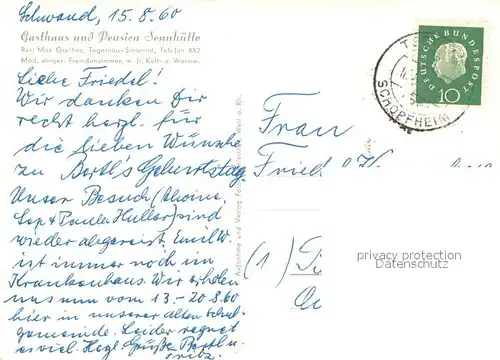 Schwand, 15.8.60
Gasthaus und Pension Sennhütte
Bes. Max Grether, Tegernau-Schwand, Telefon 882
Mod. einger. Fremdenzimmer, m. fl. Kalt- u. Warmw.
Liebe Friedel!
Wir danken Dir
recht herzl. für
die lieben Wünsche
zu Bertl's Geburtstag.
Unser Besuch
Sep + Paula Huller) sind
wieder abgereist. Emil W.
ist immer noch im
Krankenhaus. Wir erholen
uns nun vom 13.-20.8.60
hier in unserer alten Schul-
gemeinde. Leider regnet
es viel. Herzl. Grüße Bertl u.
Fritz.
Aufnahme und Verlag Foto
Weil a. Rh.
Frau
Fried
(1)
DEUTSCHE BUNDESPOST
10
SCHOPFHEIM
privacy protection
Datenschutz